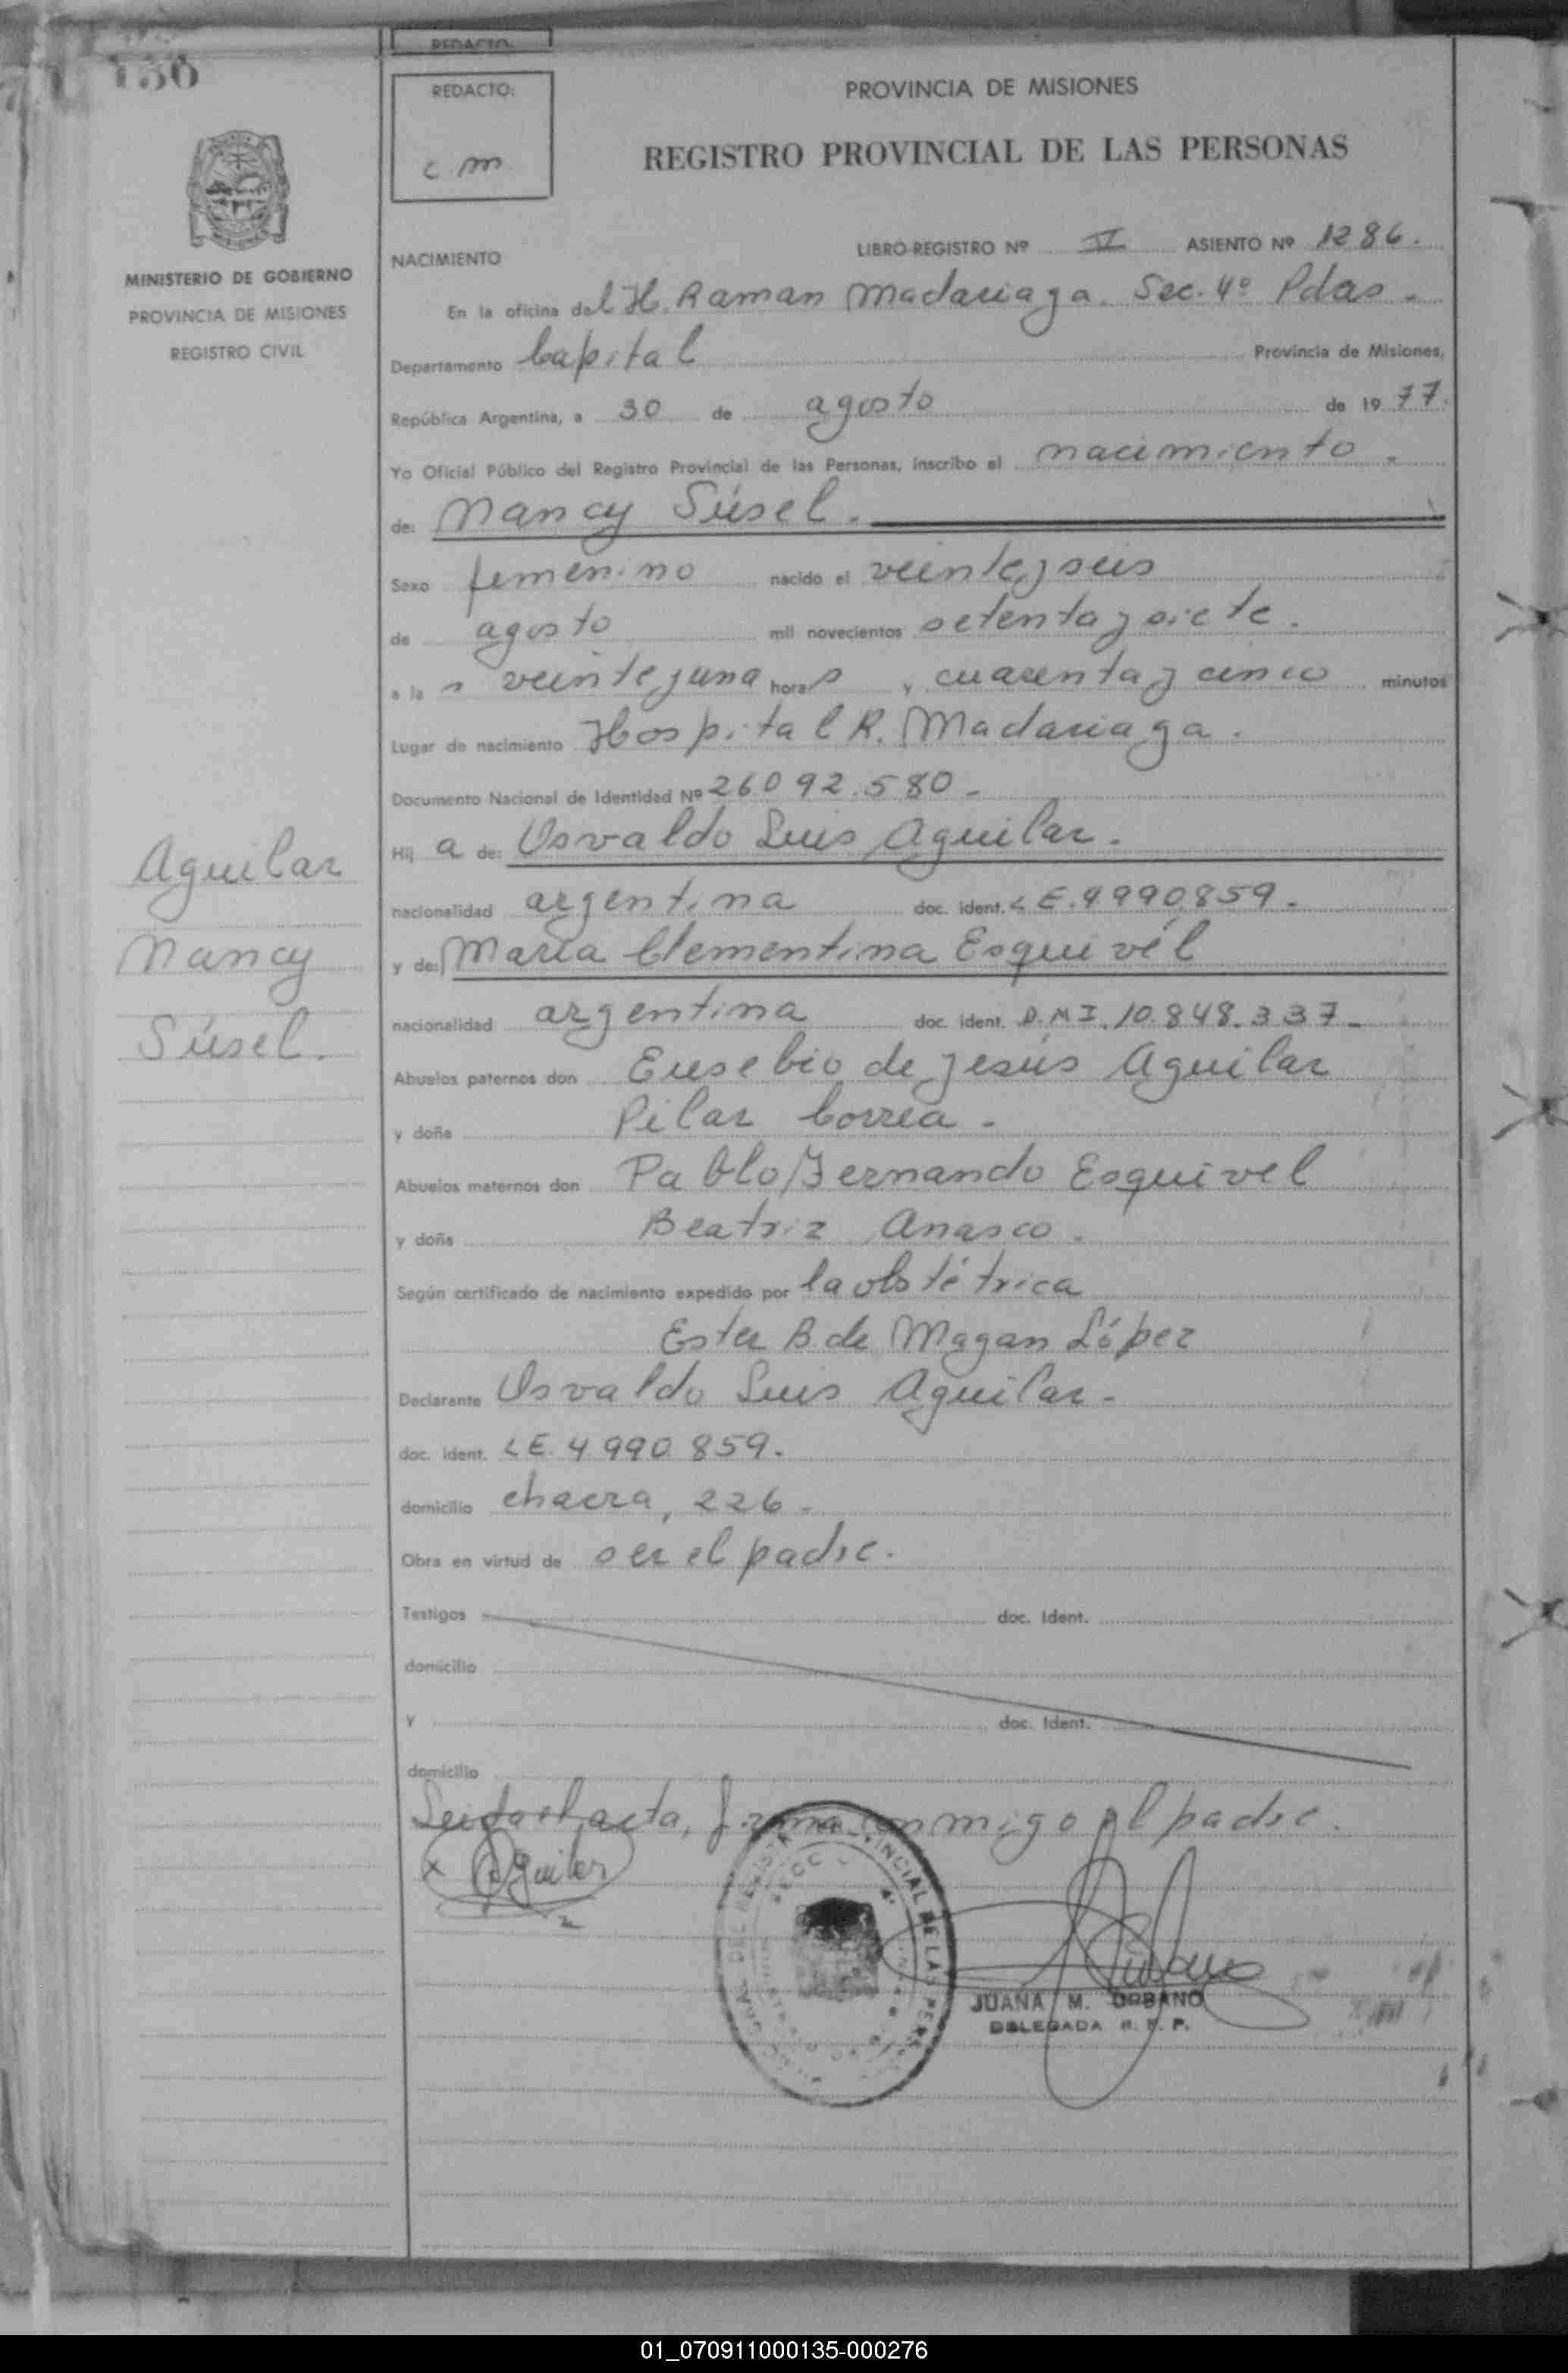 REDACTO:
136
REDACTO:
c. m.
PROVINCIA DE MISIONES
REGISTRO PROVINCIAL DE LAS PERSONAS
MINISTERIO DE GOBIERNO
PROVINCIA DE MISIONES
REGISTRO CIVIL
NACIMIENTO
LIBRO-REGISTRO Nº V ASIENTO Nº 1286.
En la oficina del H. Raman Madariaga. Sec. 4º Pdas.
Departamento Capital Provincia de Misiones,
República Argentina, a 30 de agosto de 1977.
Yo Oficial Público del Registro Provincial de las Personas, inscribo el nacimiento.
de: Nancy Súsel.
Sexo femenino nacido el veinteyseis
de agosto mil novecientos setentaysiete.
a la s veinteyuna horas y cuarentaycinco minutos
Lugar de nacimiento Hospital R. Madariaga.
Documento Nacional de Identidad Nº 26092.580.
Hij a de: Osvaldo Luis Aguilar.
nacionalidad argentina doc. ident. LE. 4990859.
y de: María Clementina Esquivél
nacionalidad argentina doc. ident. D.M.I. 10.848.337.
Abuelos paternos don Eusebio de Jesús Aguilar
y doña Pilar Correa.
Abuelos maternos don Pablo Fernando Esquivel
y doña Beatriz Anasco.
Según certificado de nacimiento expedido por la obstétrica
Ester B. de Magan López
Declarante Osvaldo Luis Aguilar.
doc. ident. LE. 4.990.859.
domicilio chacra, 226.
Obra en virtud de ser el padre.
Testigos doc. Ident.
domicilio
y doc. Ident.
domicilio
Leida el acta, firma conmigo el padre.
x Aguilar
JUANA M. URBANO
DELEGADA R. P. P.
Aguilar
Nancy
Súsel.
01_070911000135-000276